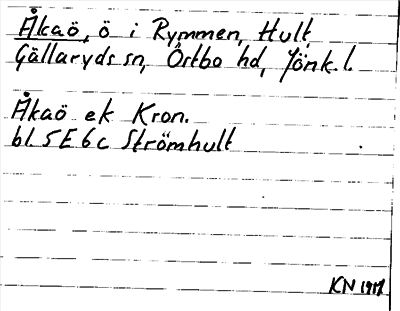 Åkaö, ö i Rymmen, Hult,
Gällaryds sn, Östbo hd, Jönk. l.
Åkaö ek Kron.
bl. 5 E 6 c Strömhult
KN